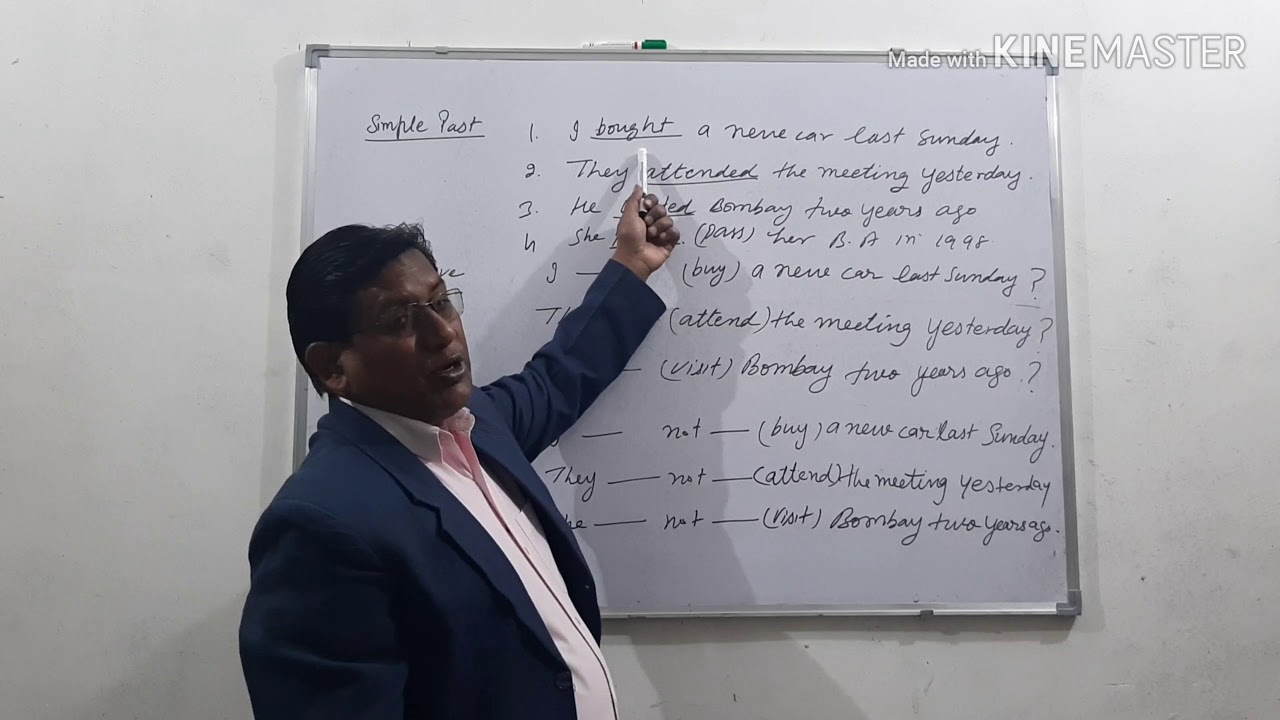 Made with KINEMASTER
Simple Past
1. I bought a new car last Sunday.
2. They attended the meeting yesterday.
3. He Bombay two years ago
4. She (pass) her B.A in 1998.
I — (buy) a new car last Sunday?
(attend) the meeting yesterday?
— (visit) Bombay two years ago?
— not — (buy) a new car last Sunday.
They — not — (attend) the meeting yesterday
— not — (visit) Bombay two years ago.